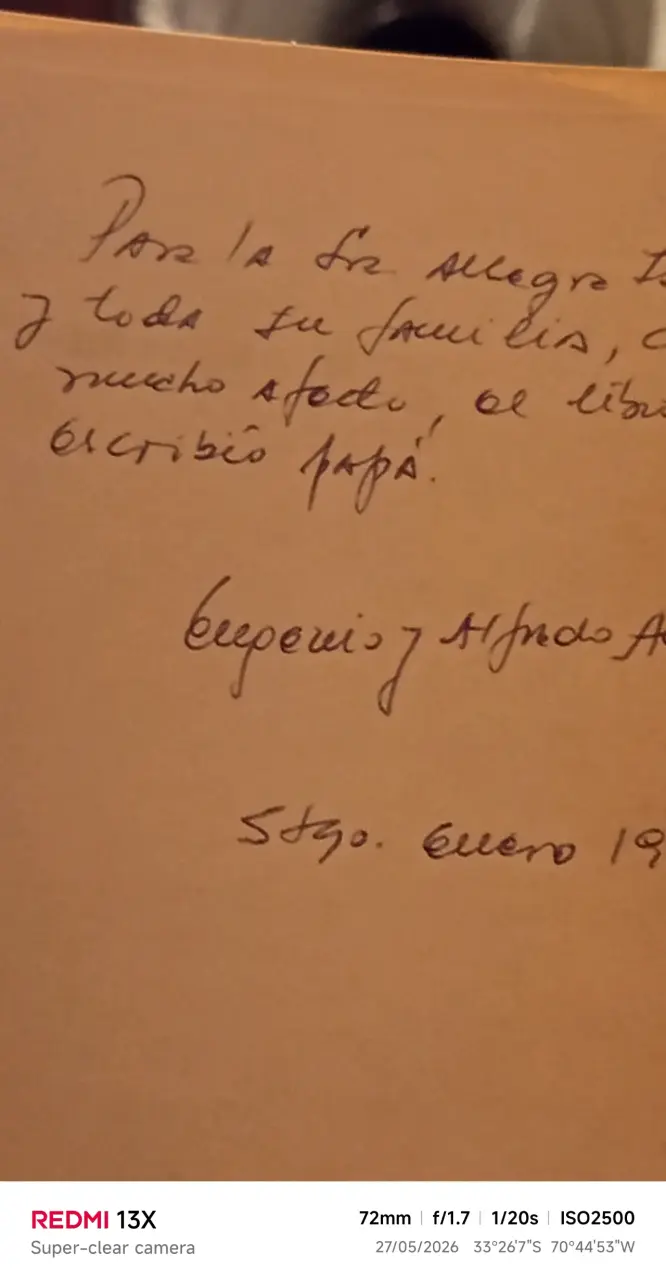 Para la Sra Allegra
y toda su familia,
mucho afecto, el
escribió papá.
Eugenio y Alfredo
Stgo. Enero 19
REDMI 13X
Super-clear camera
72mm | f/1.7 | 1/20s | ISO2500
27/05/2026 33°26'7"S 70°44'53"W